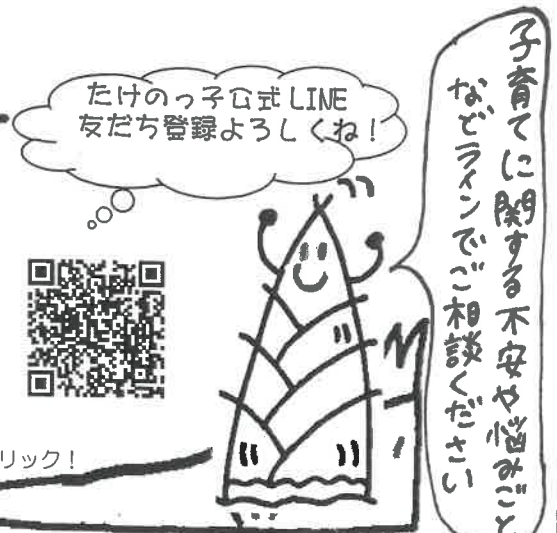 たけのっ子公式LINE
友だち登録よろしくね!
子育てに関する不安や悩みごと
などラインでご相談ください
リック!